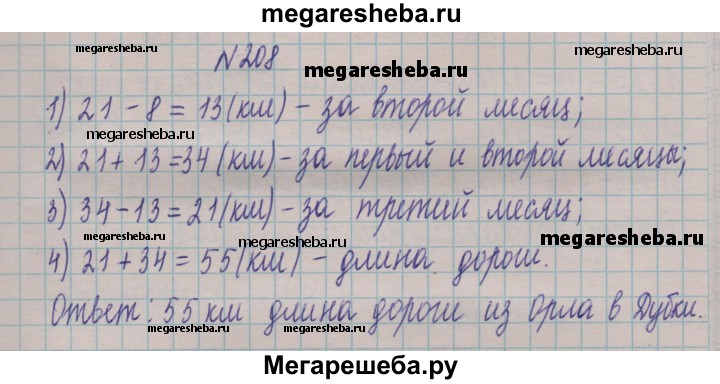 megaresheba.ru
megaresheba.ru
N 208
megaresheba.ru
1) 21 - 8 = 13 (км) - за второй месяц;
megaresheba.ru
2) 21 + 13 = 34 (км) - за первый и второй месяцы;
3) 34 - 13 = 21 (км) - за третий месяц;
megaresheba.ru
megaresheba.ru
4) 21 + 34 = 55 (км) - длина дороги.
Ответ: 55 км длина дороги из Орла в Дубки.
megaresheba.ru
megaresheba.ru
Мегарешеба.ру